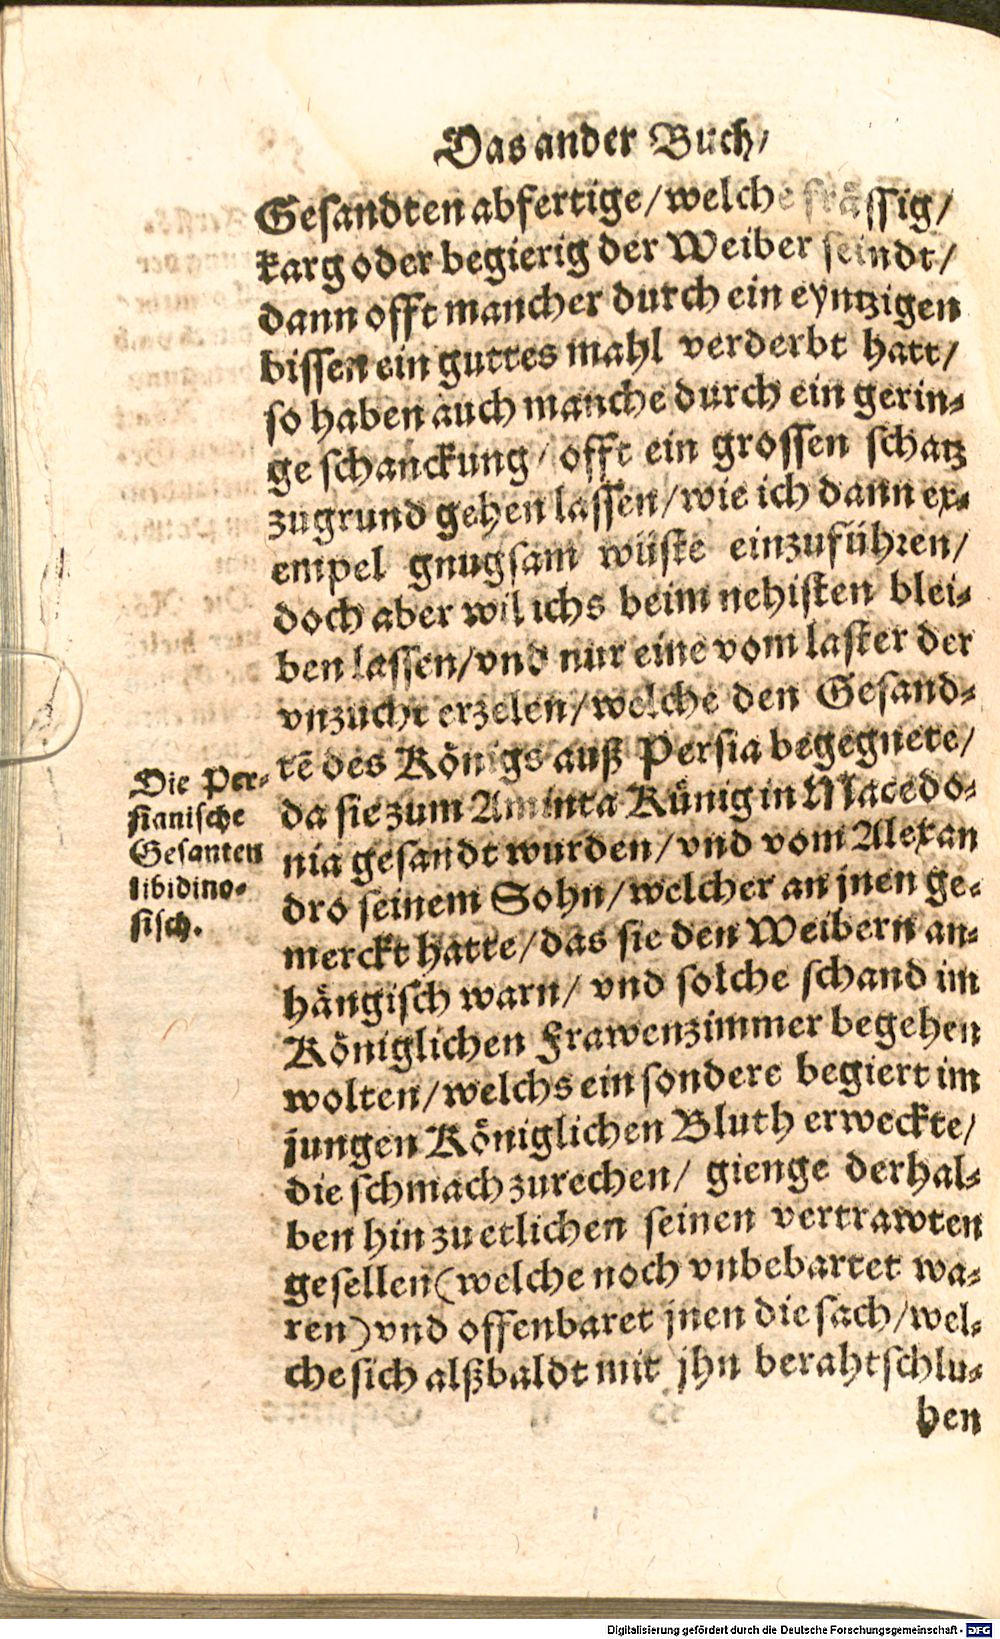 Das ander Buch/
Gesandten abfertige/welche frässig/
karg oder begierig der Weiber seindt/
dann offt mancher durch ein eyntzigen
bissen ein guttes mahl verderbt hatt/
so haben auch manche durch ein gerin-
ge schanckung/ offt ein grossen schatz
zugrund gehen lassen/wie ich dann ex-
empel gnugsam wüste einzuführen/
doch aber wil ichs beim nehisten blei-
ben lassen/vnd nur eine vom laster der
vnzucht erzelen/welche den Gesand-
tē des Königs auß Persia begegnete/
da sie zum Aminta Künig in Macedo-
nia gesandt wurden/vnd vom Alexan
dro seinem Sohn/welcher an jnen ge-
merckt hatte/das sie den Weibern an-
hängisch warn/ vnd solche schand im
Königlichen Frawenzimmer begehen
wolten/welchs ein sondere begiert im
jungen Königlichen Bluth erweckte/
die schmach zurechen/ gienge derhal-
ben hin zu etlichen seinen vertrawten
gesellen(welche noch vnbebartet wa-
ren)vnd offenbaret jnen die sach/wel-
che sich alßbaldt mit jhn berahtschlu-
ben
Die Per-
sianische
Gesanten
libidino-
sisch.
Digitalisierung gefördert durch die Deutsche Forschungsgemeinschaft - DFG